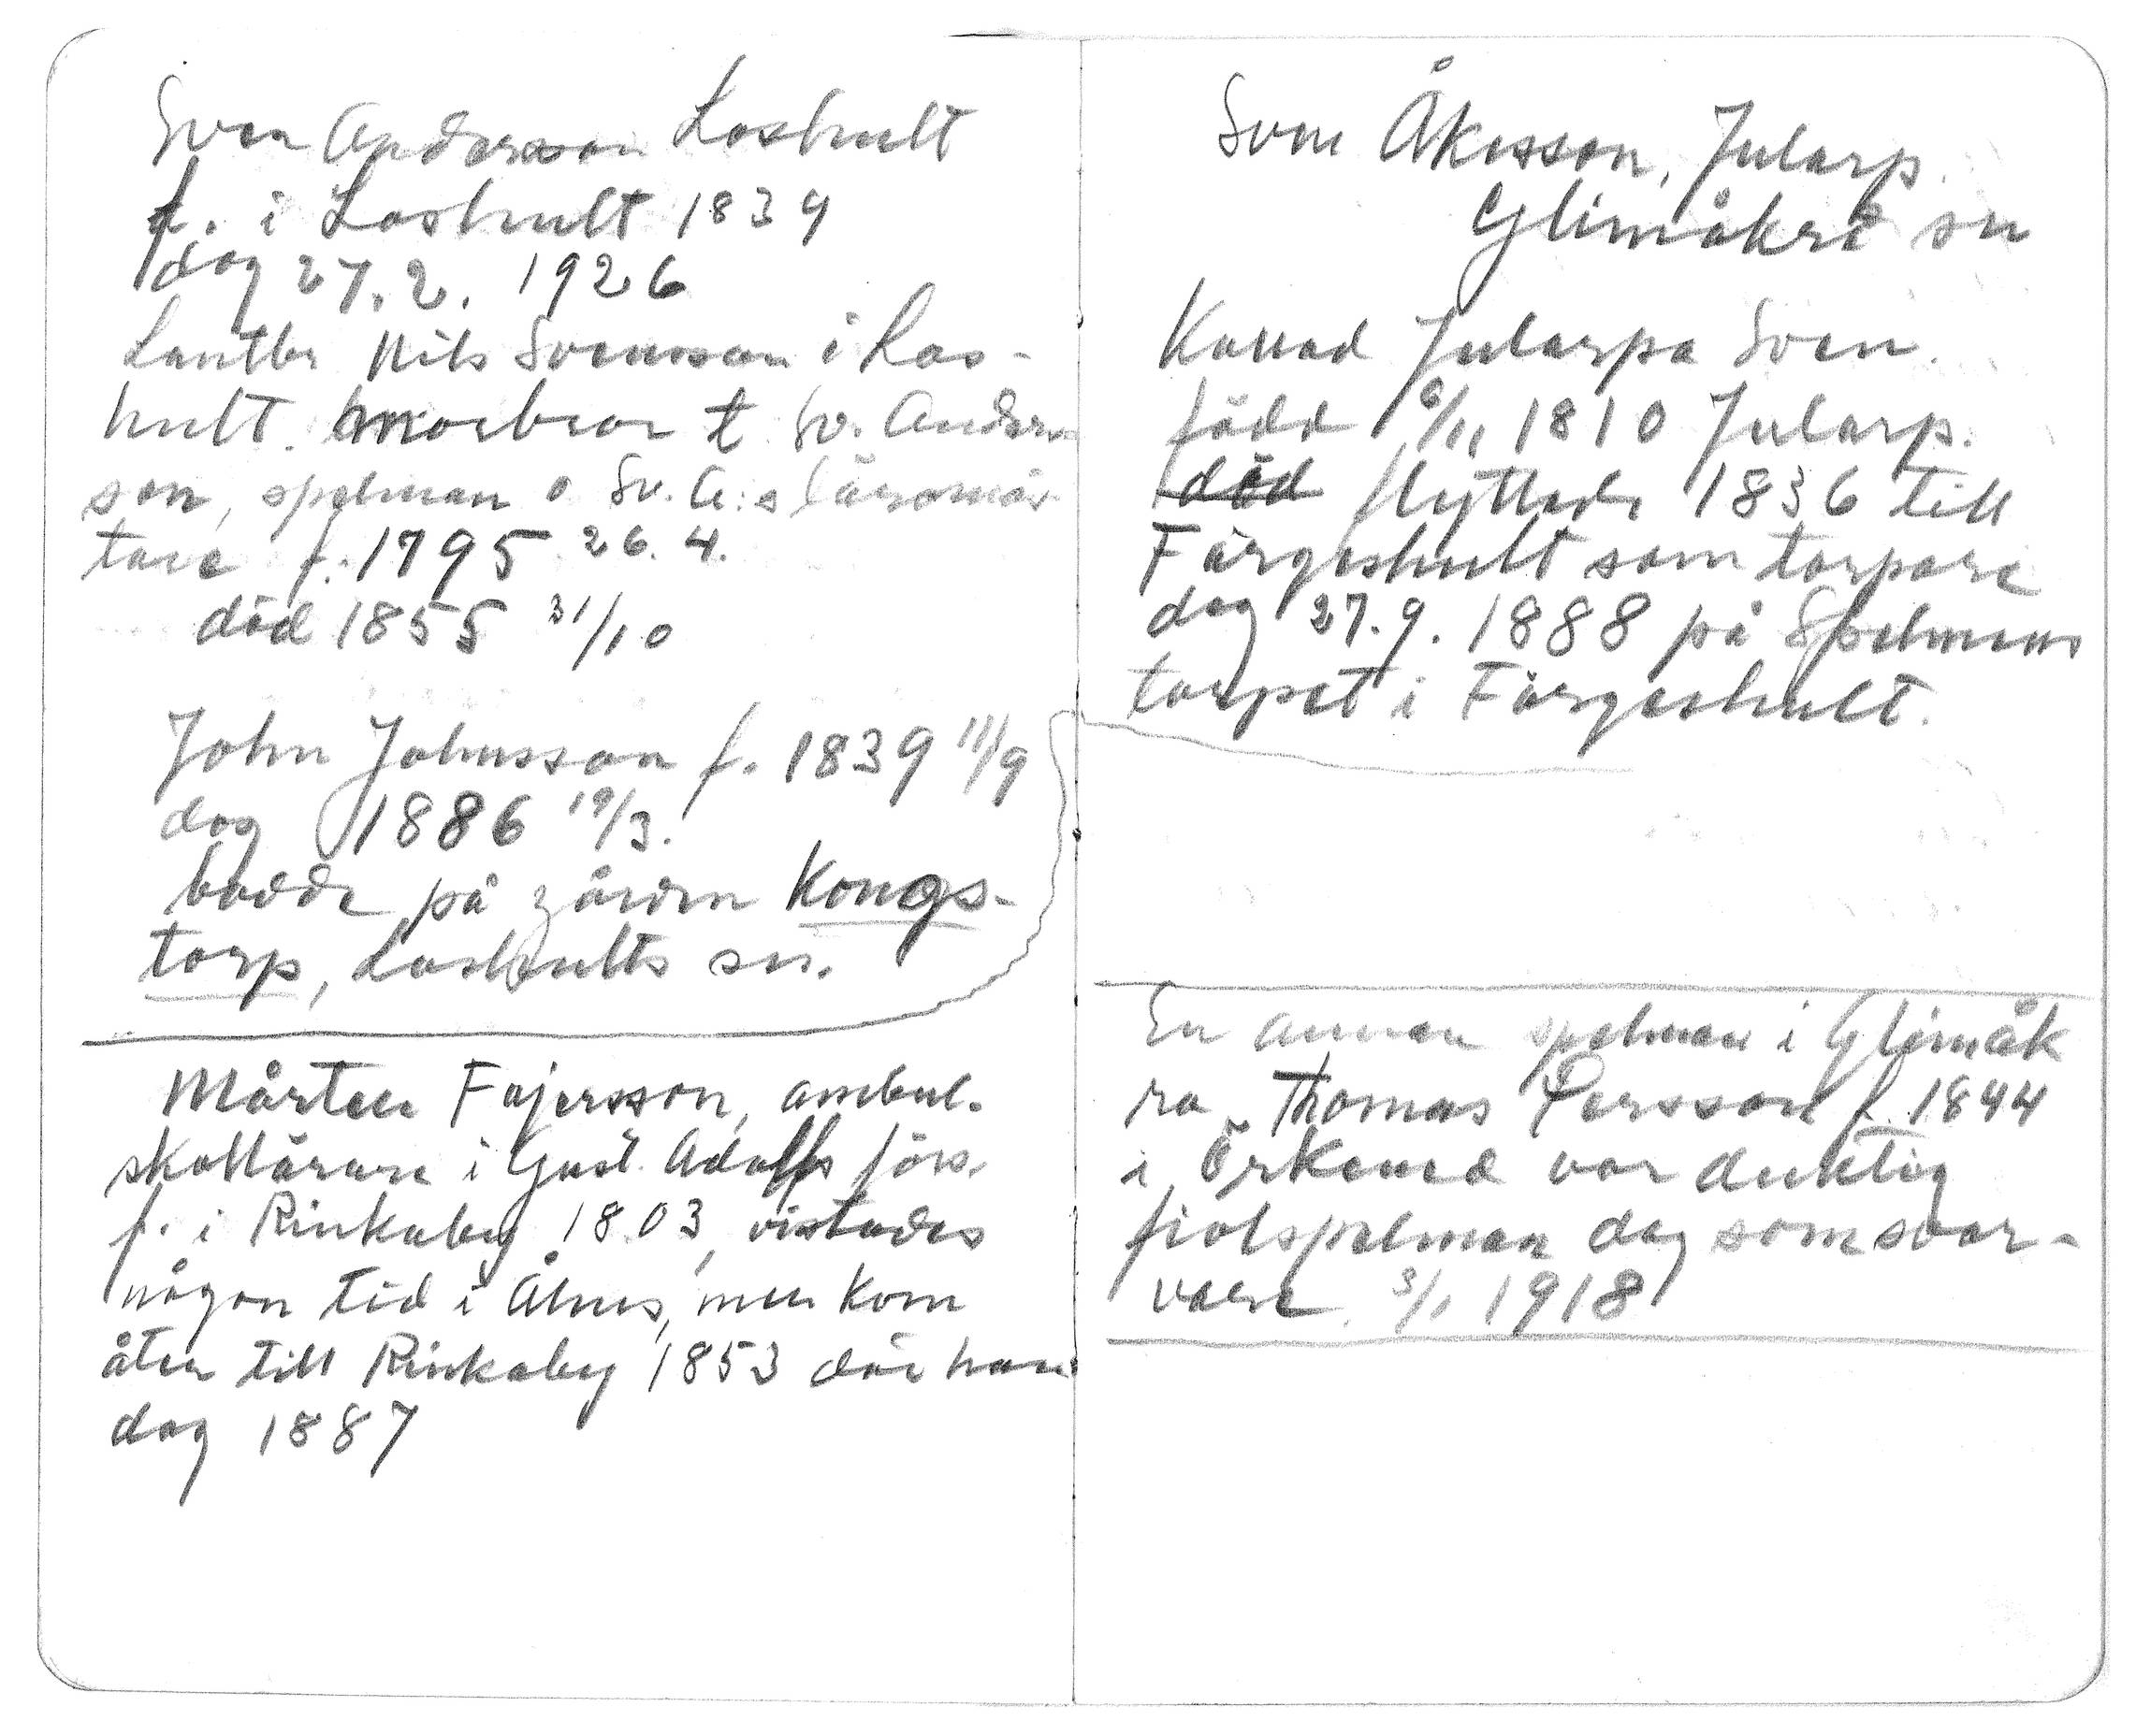 Sven Andersson Loshult
f. i Loshult 1839
dog 27.2. 1926
Lantbr Nils Svensson i Los-
hult. morbror t Sv. Anders
son, spelman o Sv. A:s läromäs
tare f. 1795 26. 4.
död 1855 31/10
John Johnsson f. 1839 11/9
dog 1886 19/3.
bodde på gården Kongs-
torp, Loshults sn.
Mårten Fajersson, ambul.
skollärare i Gust. Adolfs förs.
f. i Rinkaby 1803, vistades
någon tid i Åhus, men kom
åter till Rinkaby 1853 där han
dog 1887
Sven Åkesson, Jularp.
Glimåkra sn
Kallad Jularpa Sven.
född 6/11 1810 Jularp.
död flyttade 1836 till
Färgeshult som torpare
dog 27.9. 1888 på Spelmans
torpet i Färgeshult.
En annan spelman i Glimåk
ra Thomas Persson f. 1844
i Örkened var duktig
fiolspelman dog som svar-
vare 3/1 1918